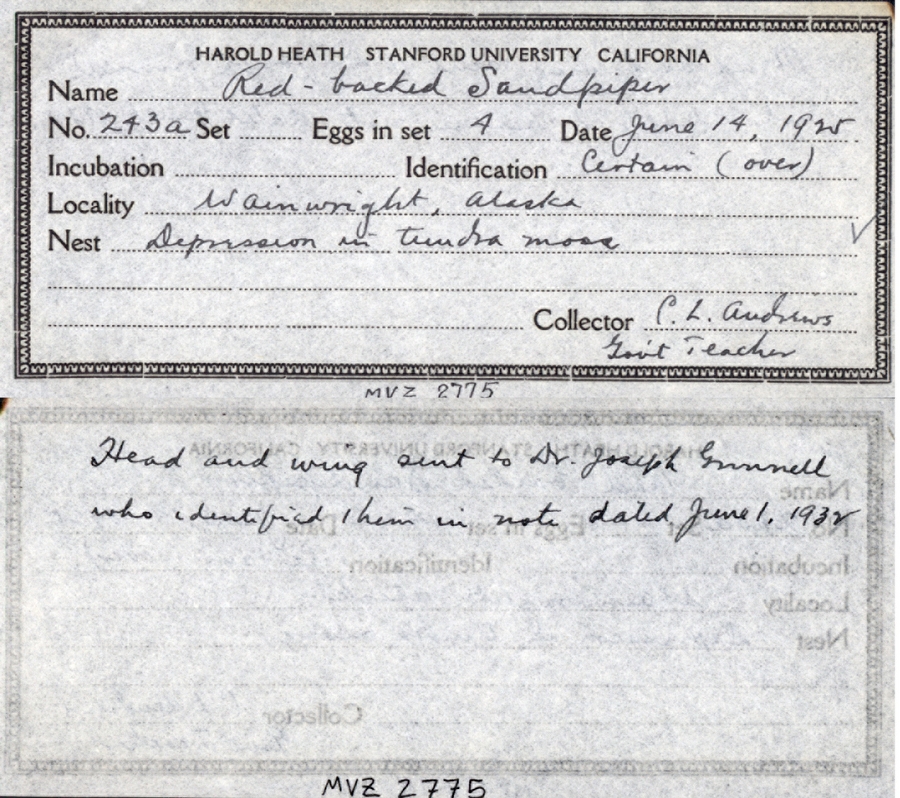 HAROLD HEATH STANFORD UNIVERSITY CALIFORNIA
Name Red-backed Sandpiper
No. 243a Set Eggs in set 4 Date June 14, 1925
Incubation Identification Certain (over)
Locality Wainwright, Alaska
Nest Depression in tundra moss
Collector C. L. Andrews
Gov't Teacher
MVZ 2775
Head and wing sent to Dr. Joseph Grinnell
who identified them in note dated June 1, 1932
MVZ 2775